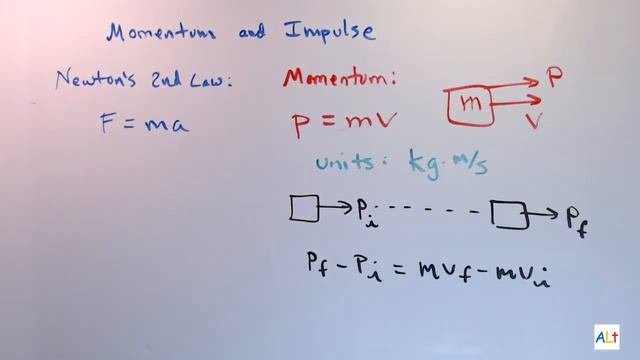 Momentum and Impulse
Newton's 2nd Law:
F = ma
Momentum:
P = mV
m
P
V
units: kg·m/s
Pi - - - - - - Pf
Pf - Pi = mVf - mVi
ALt